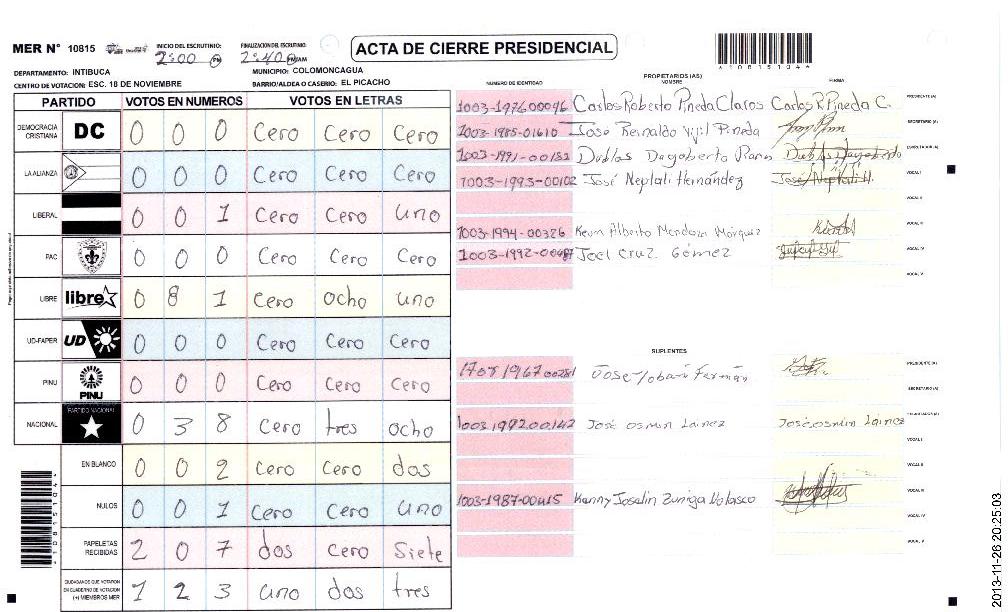 MER N° 10815
INICIO DEL ESCRUTINIO:
2:00 PM
FINALIZACION DEL ESCRUTINIO:
2:40 PM/AM
ACTA DE CIERRE PRESIDENCIAL
10815104
DEPARTAMENTO: INTIBUCA
MUNICIPIO: COLOMONCAGUA
CENTRO DE VOTACION: ESC. 18 DE NOVIEMBRE
BARRIO/ALDEA O CASERIO: EL PICACHO
PARTIDO VOTOS EN NUMEROS VOTOS EN LETRAS
DEMOCRACIA CRISTIANA DC 0 0 0 Cero Cero Cero
LA ALIANZA 0 0 0 Cero Cero Cero
LIBERAL 0 0 1 Cero Cero uno
PAC 0 0 0 Cero Cero Cero
LIBRE libre 0 8 1 Cero ocho uno
UD-FAPER UD 0 0 0 Cero Cero Cero
PINU PINU 0 0 0 Cero Cero Cero
NACIONAL PARTIDO NACIONAL 0 3 8 Cero tres ocho
EN BLANCO 0 0 2 Cero Cero dos
NULOS 0 0 1 Cero Cero uno
PAPELETAS RECIBIDAS 2 0 7 dos Cero Siete
CIUDADANOS QUE VOTARON EN CUADERNO DE VOTACION (+) MIEMBROS MER 1 2 3 uno dos tres
10815104
PROPIETARIOS (AS)
NUMERO DE IDENTIDAD NOMBRE FIRMA
1003-197600096 Carlos Roberto Pineda Claros Carlos R. Pineda C. PRESIDENTE (A)
1003-1985-01610 José Reinaldo Vijil Pineda SECRETARIO (A)
1003-1991-00182 Dublas Dagoberto Dublas Dagoberto ESCRUTADOR (A)
1003-1993-00102 José Neptali Hernández José Neptali H. VOCAL I
VOCAL II
1003-1994-00326 Kevin Alberto Mendoza Márquez VOCAL III
1003-1992-00487 Joel Cruz Gómez VOCAL IV
VOCAL V
SUPLENTES
José PRESIDENTE (A)
SECRETARIO (A)
1003199200142 José osmin Lainez José osmin Lainez ESCRUTADOR (A)
VOCAL I
VOCAL II
1003-1987-00415 Kenny Joselin Zuniga Velasco VOCAL III
VOCAL IV
VOCAL V
2013-11-26 20:25:03